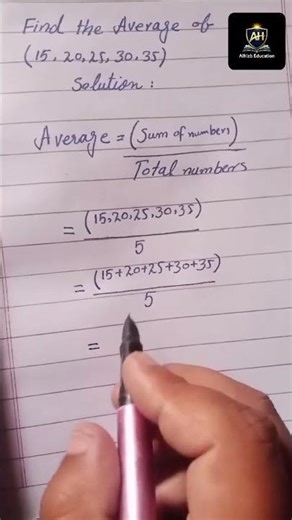 Find the Average of
(15, 20, 25, 30, 35)
Solution :
Average = (Sum of numbers)
Total numbers
= (15,20,25,30,35)
5
= (15+20+25+30+35)
5
=
AH
AlHizb Education